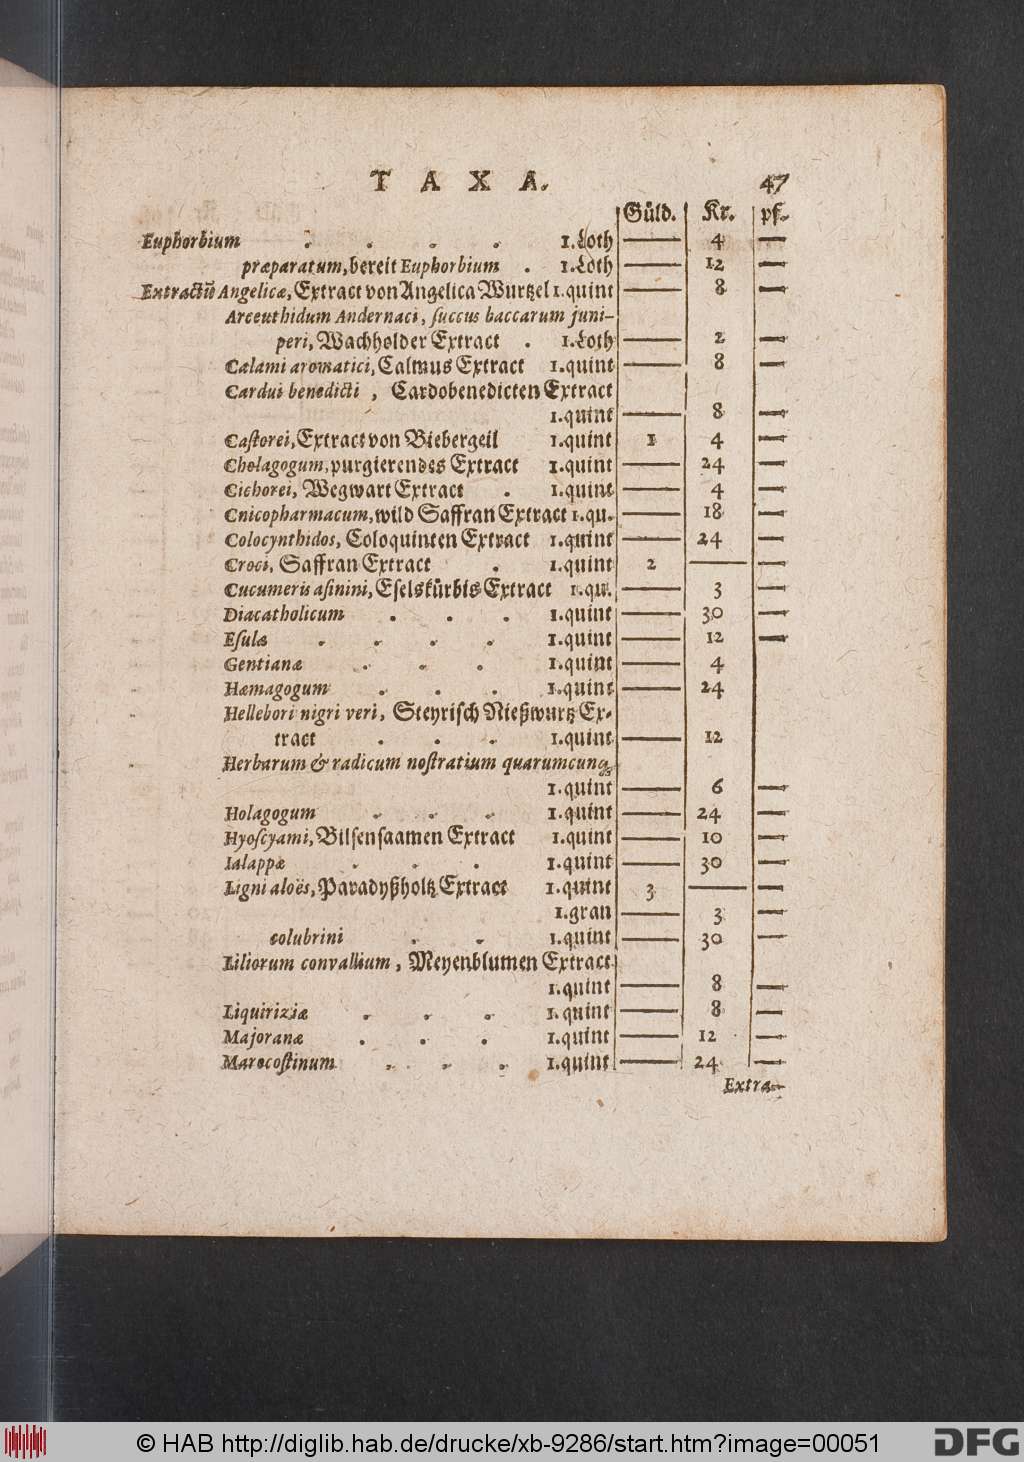 TAXA. 47
Güld. Kr. pf.
Euphorbium . . . . 1.Loth — 4 —
præparatum, bereit Euphorbium . 1.Loth — 12 —
Extractũ Angelicæ, Extract von Angelica Wurtzel 1.quint — 8 —
Arceuthidum Andernaci, ſuccus baccarum juni-
peri, Wachholder Extract . 1.Loth — 2 —
Calami aromatici, Calmus Extract 1.quint — 8 —
Cardui benedicti, Cardobenedicten Extract
1.quint — 8 —
Caſtorei, Extract von Biebergeil 1.quint 1 4 —
Cholagogum, purgierendes Extract 1.quint — 24 —
Cichorei, Wegwart Extract . 1.quint — 4 —
Cnicopharmacum, wild Saffran Extract 1.qu. — 18 —
Colocynthidos, Coloquinten Extract 1.quint — 24 —
Croci, Saffran Extract . 1.quint 2 — —
Cucumeris aſinini, Eſelskürbis Extract 1.qu. — 3 —
Diacatholicum . . . 1.quint — 30 —
Eſulæ . . . . 1.quint — 12 —
Gentianæ . . . 1.quint — 4
Hæmagogum . . . 1.quint — 24
Hellebori nigri veri, Steyriſch Nießwurtz Ex-
tract . . . 1.quint — 12
Herbarum & radicum noſtratium quarumcunq́;
1.quint — 6 —
Holagogum . . . 1.quint — 24 —
Hyoſcyami, Bilſenſaamen Extract 1.quint — 10 —
Ialappæ . . . 1.quint — 30 —
Ligni aloës, Paradyßholtz Extract 1.quint 3 — —
1.gran — 3 —
colubrini . . 1.quint — 30 —
Liliorum convallium, Meyenblumen Extract
1.quint — 8 —
Liquiriziæ . . . 1.quint — 8 —
Majoranæ . . . 1.quint — 12 —
Marocoſtinum . . . 1.quint — 24 —
Extra-
© HAB http://diglib.hab.de/drucke/xb-9286/start.htm?image=00051 DFG